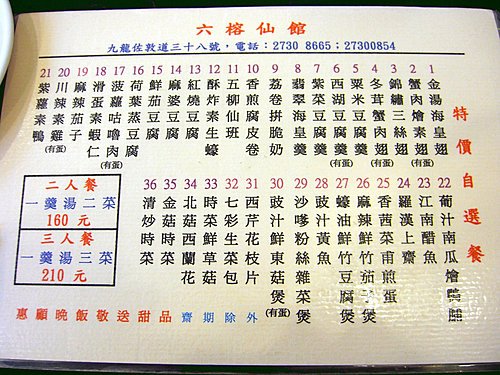 六榕仙館
九龍佐敦道三十八號，電話：2730 8665；27300854
特價自選餐
1 金湯海皇翅 (有蛋)
2 蟹肉燴素翅 (有蛋)
3 錦繡肉絲翅
4 冬茸蟹翅
5 粟米羹 (有蛋)
6 西湖羹 (有蛋)
7 紫菜豆腐羹
8 翡翠海皇羹
9 荔奶卷
10 香煎腐皮卷
11 五柳班
12 酥炸素仙蠔
13 紅燒豆腐
14 麻婆豆腐
15 鮮茄豆腐
16 荷葉豆腐 (有蛋)
17 菠蘿咕嚕肉
18 滑蛋蝦仁
19 麻辣茄子
20 川辣素雞 (有蛋)
21 紫蘿素鴨
22 葡汁南瓜燴脯
23 江南醋魚
24 羅漢上齋
25 香茜煎蛋
26 麻辣茄子煲
27 竹豆腐煲
28 黃魚
29 沙嗲粉絲雜菜煲
30 豉汁鮮東菇煲 (有蛋)
31 西芹花枝片
32 七彩生菜包
33 時菜鮮草菇
34 北菇西蘭花
35 金菇時菜
36 清炒時菜
二人餐
一羹湯二菜
160 元
三人餐
一羹湯三菜
210 元
惠顧晚飯敬送甜品 齋期除外